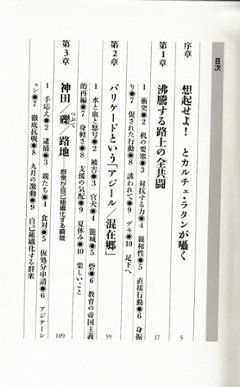 目次
序章　想起せよ！　とカルチェ・ラタンが囁く　5
第1章　沸騰する路上の全共闘　17
1 衝突●2 机の要塞●3 対抗する力●4 親和性●5 直接行動●6 身振
り●7 促された行動●8 誘われて●9 デモ●10 足下へ
第2章　バリケードという「アジール／混在郷」　59
1 水と血と怒号●2 被害●3 官犬●4 籠城●5 砦●6 教育の帝国主義
的再編●7 身軽さ●8 支援の気配●9 夏休み●10 楽しいこと
第3章　神田　礫／路地　群衆が自己組織化する瞬間　109
つぶて
1 手応え●2 逮捕●3 親たち●4 食対●5 仮処分申請●6 アジテーシ
ョン●7 徹底抗戦●8 九月の激動●9 自己組織化する群衆